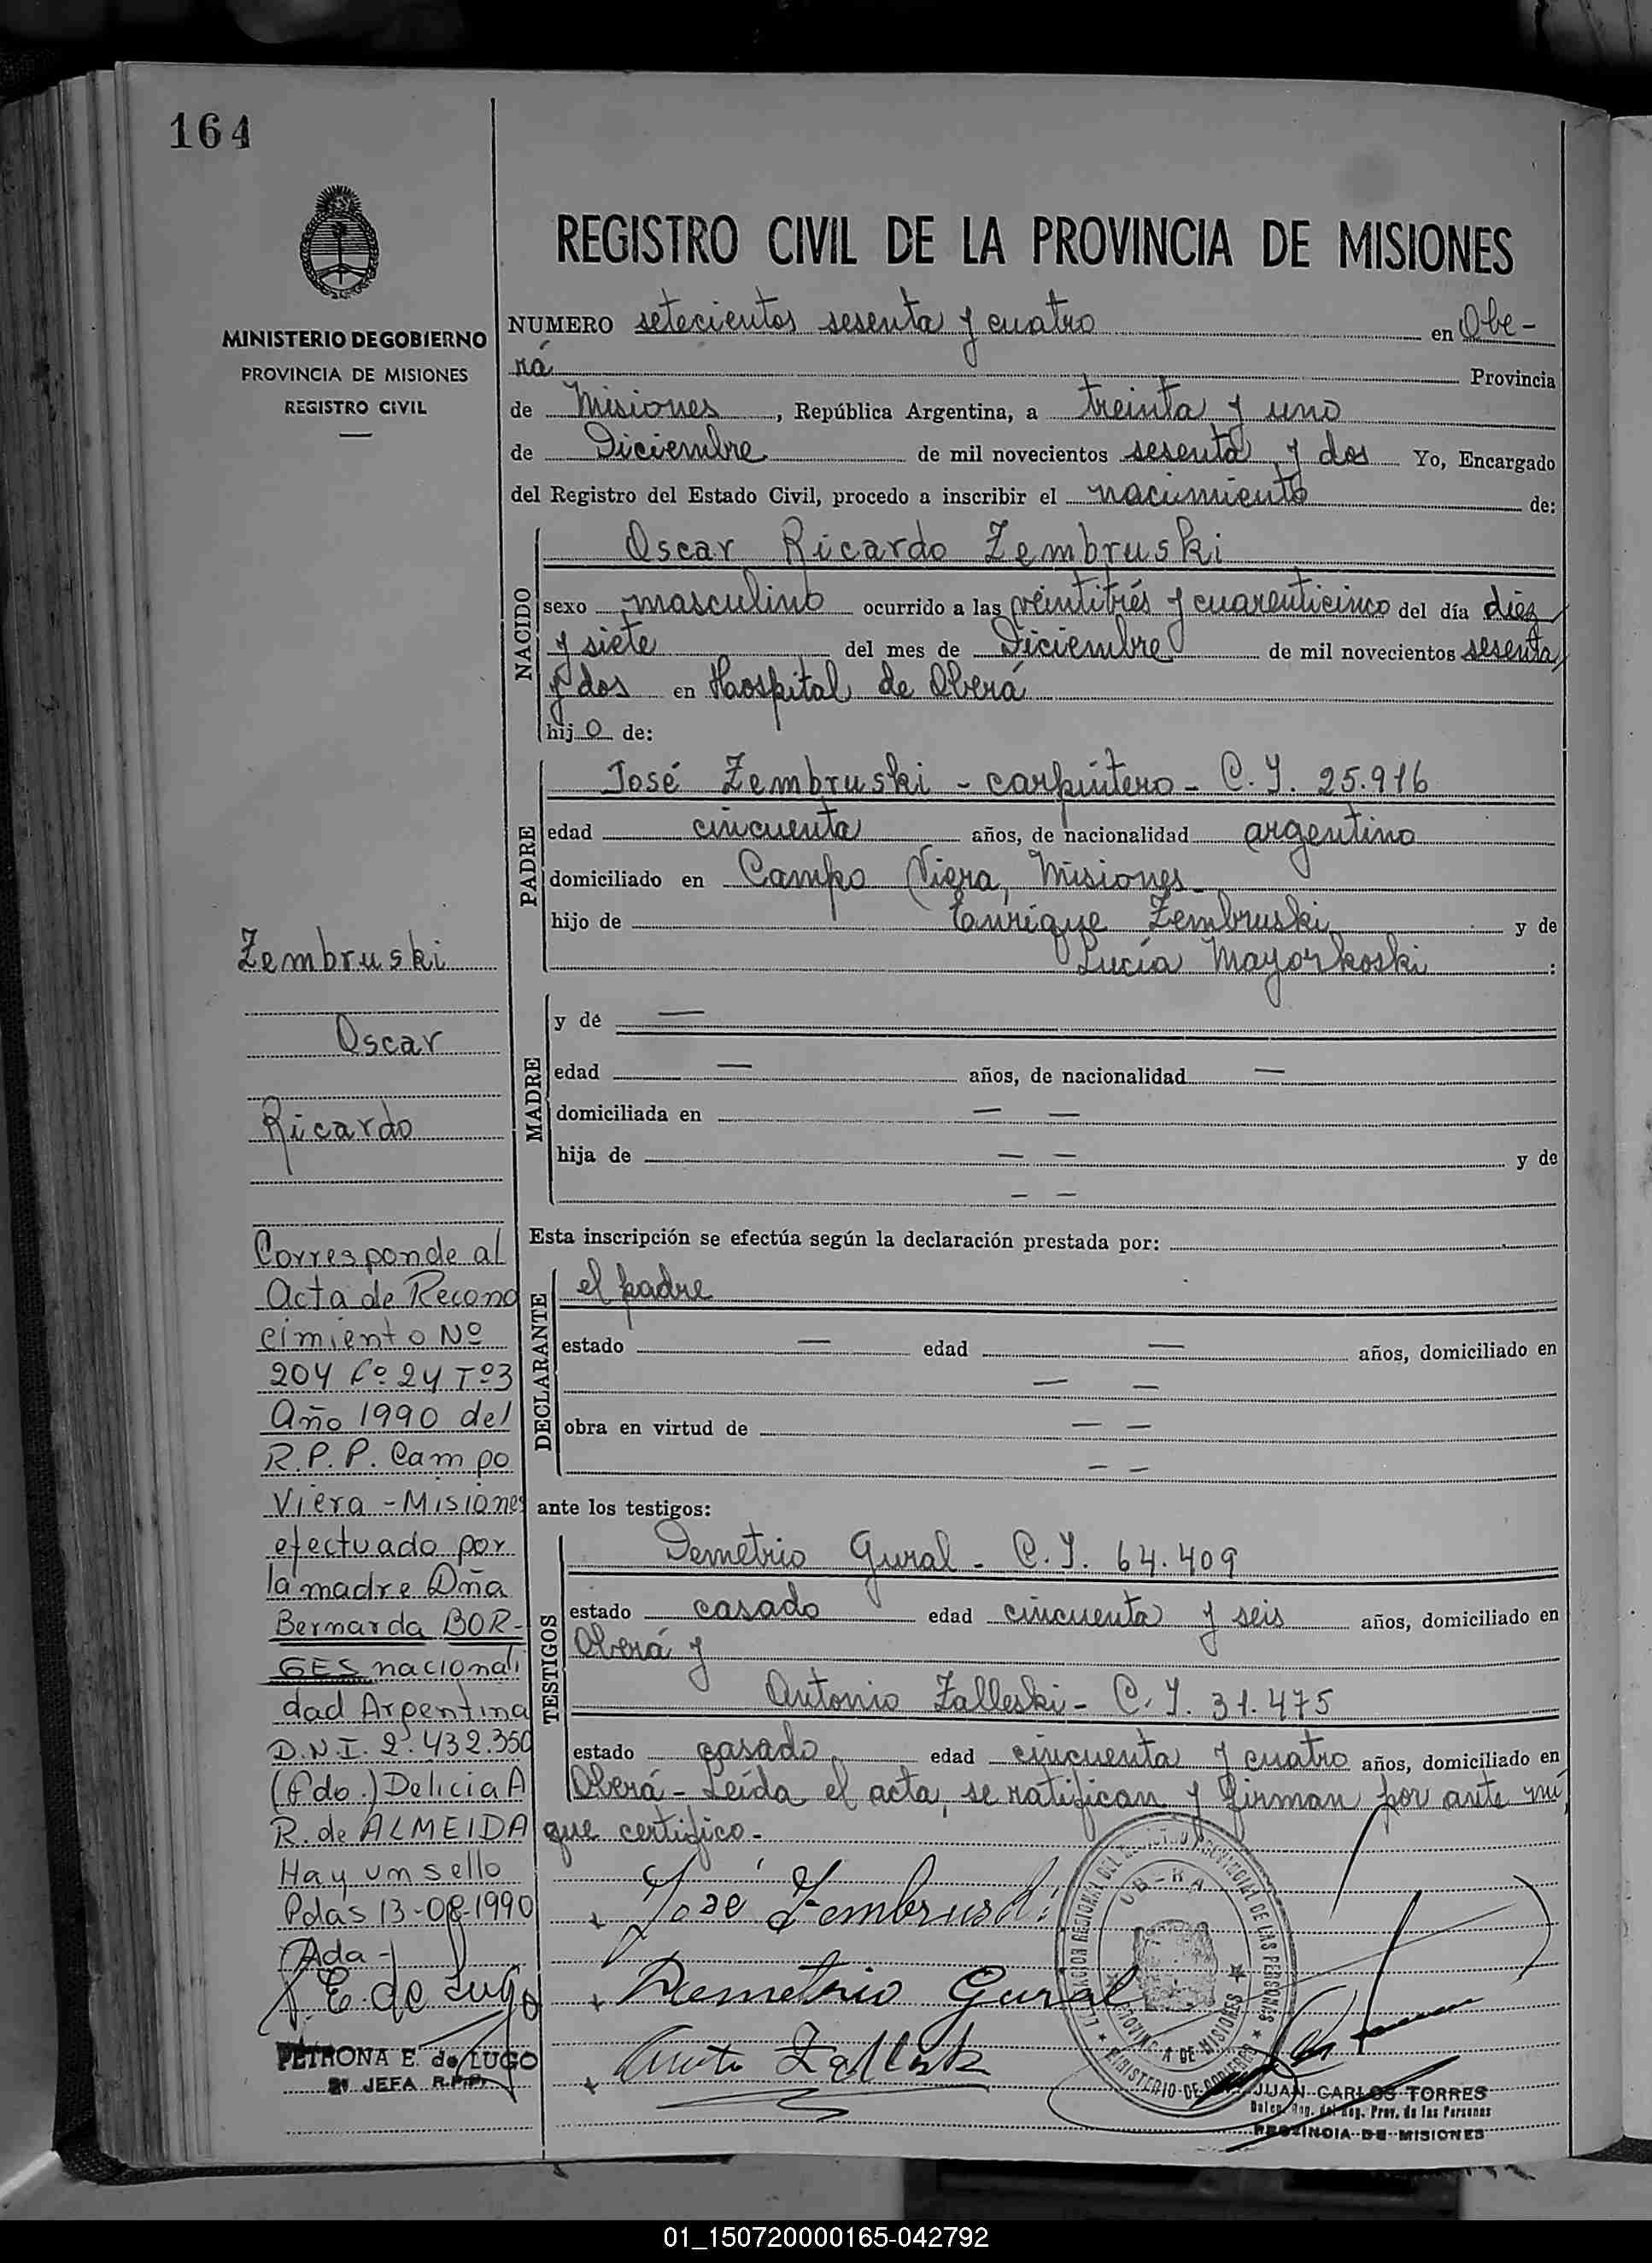 164
MINISTERIO DE GOBIERNO
PROVINCIA DE MISIONES
REGISTRO CIVIL
REGISTRO CIVIL DE LA PROVINCIA DE MISIONES
NUMERO setecientos sesenta y cuatro en Obe-
rá Provincia
de Misiones, República Argentina, a treinta y uno
de Diciembre de mil novecientos sesenta y dos Yo, Encargado
del Registro del Estado Civil, procedo a inscribir el nacimiento de:
NACIDO
Oscar Ricardo Zembruski
sexo masculino ocurrido a las veintitrés y cuarenticinco del día diez
y siete del mes de Diciembre de mil novecientos sesenta
y dos en Haospital de Oberá
hijo de:
PADRE
José Zembruski - carpintero - C.I. 25.916
edad cincuenta años, de nacionalidad argentino
domiciliado en Campo Viera, Misiones
hijo de Enrique Zembruski y de
Lucía Mayorkoski :
MADRE
y de —
edad — años, de nacionalidad —
domiciliada en — —
hija de — — y de
— —
Esta inscripción se efectúa según la declaración prestada por:
DECLARANTE
el padre
estado — edad — años, domiciliado en
— —
obra en virtud de — —
— —
ante los testigos:
TESTIGOS
Demetrio Gural - C.I. 64.409
estado casado edad cincuenta y seis años, domiciliado en
Oberá y
Antonio Zalleski - C.I. 31.475
estado casado edad cincuenta y cuatro años, domiciliado en
Oberá - Leída el acta, se ratifican y firman por ante mí,
que certifico.-
José Zembruski
Demetrio Gural
JUAN CARLOS TORRES
PROVINCIA DE MISIONES
OBERA
PROVINCIA DE MISIONES
MINISTERIO DE GOBIERNO
Zembruski
Oscar
Ricardo
Corresponde al
Acta de Recono
cimiento Nº
204 Fº 24 Tº3
Año 1990 del
R.P.P. Campo
Viera - Misiones
efectuado por
la madre Dña
Bernarda BOR-
GES nacionali
dad Argentina
D.N.I. 2.432.350
(fdo.) Delicia A
R. de ALMEIDA
Hay un sello
Pdas 13-08-1990
E. de Lugo
PETRONA E. de LUGO
JEFA R.P.P.
01_150720000165-042792